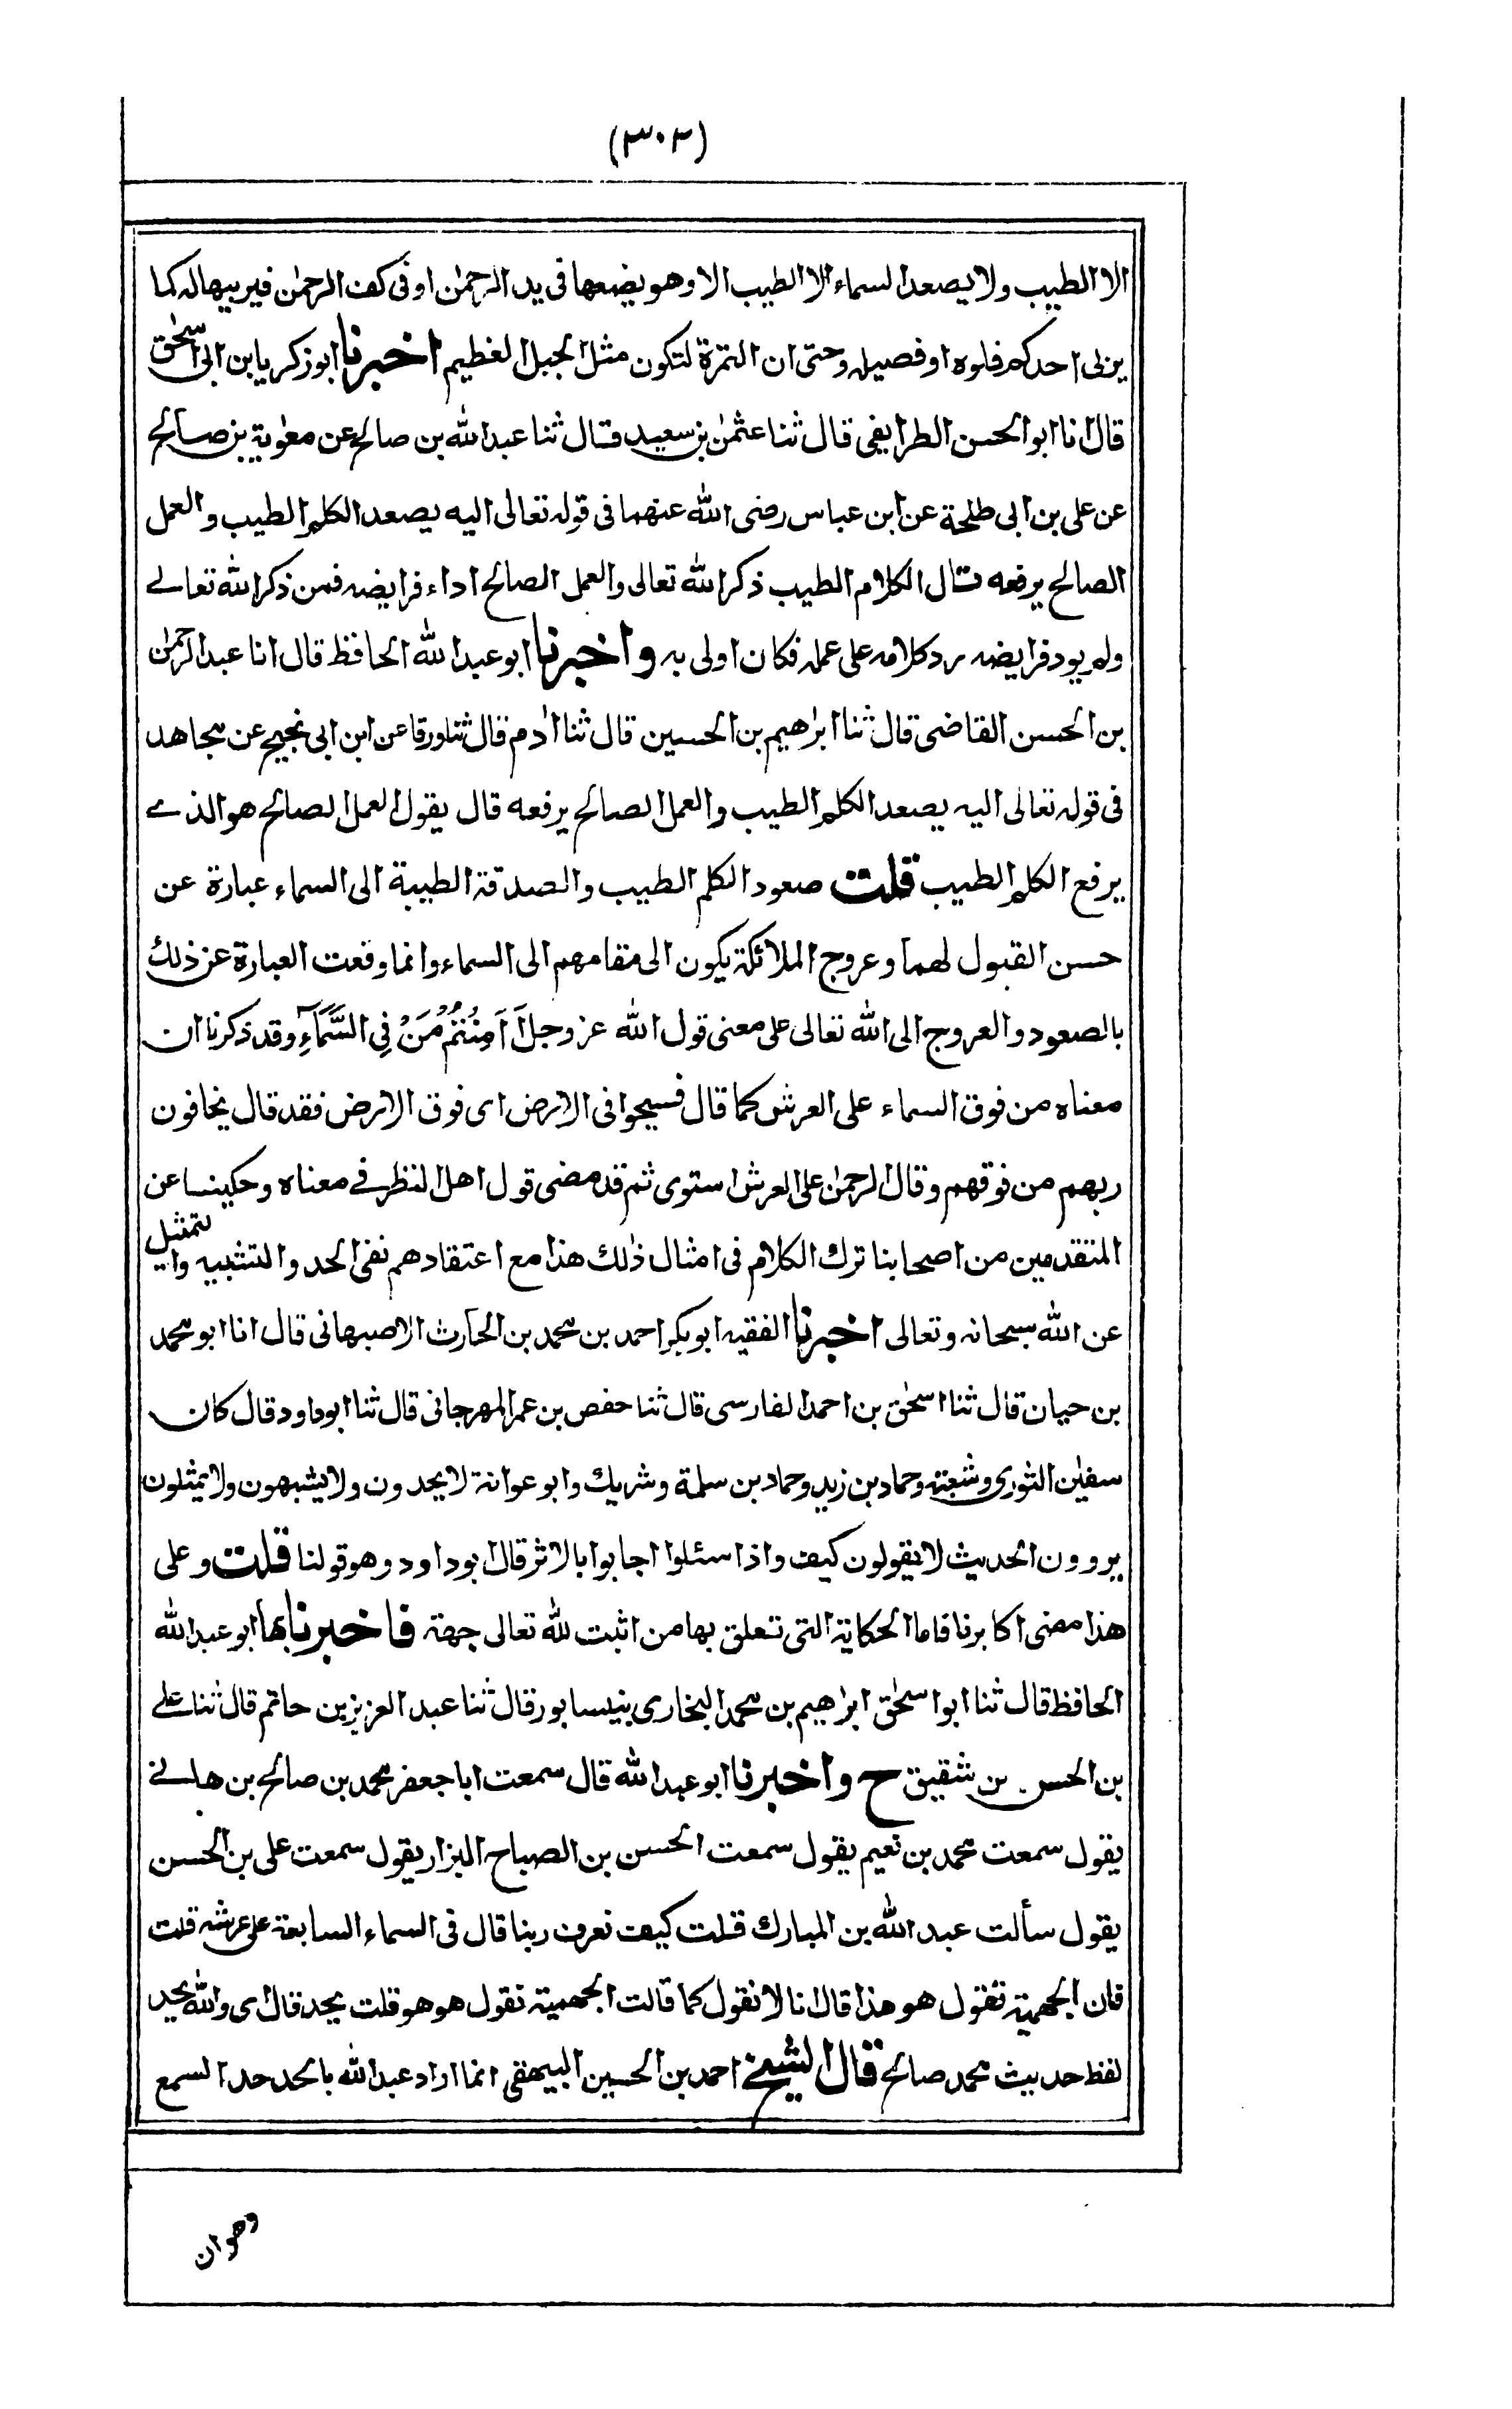 (٣٠٢)
الا الطيب ولا يصعد السماء الا الطيب الا وهو يضعها فى يد الرحمٰن او فى كف الرحمٰن فيربيها له كما
يربى احدكم فلوه او فصيله وحتى ان التمرة لتكون مثل الجبل العظيم اخبرنا ابو زكريا بن ابى اسحٰق
قال انا ابو الحسن الطرايفى قال ثنا عثمٰن بن سعيد قال ثنا عبد الله بن صالح عن معٰوية بن صالح
عن على بن ابى طلحة عن ابن عباس رضى الله عنهما فى قوله تعالى اليه يصعد الكلم الطيب والعمل
الصالح يرفعه قال الكلام الطيب ذكر الله تعالى والعمل الصالح اداء فرايضه فمن ذكر الله تعالے
ولم يود فرايضه رد كلامه على عمله فكان اولى به واخبرنا ابو عبد الله الحافظ قال انا عبد الرحمٰن
بن الحسن القاضى قال ثنا ابرٰهيم بن الحسين قال ثنا اٰدم قال ثنا ورقا عن ابن ابى نجيح عن مجاهد
فى قوله تعالى اليه يصعد الكلم الطيب والعمل الصالح يرفعه قال يقول العمل الصالح هو الذے
يرفع الكلم الطيب قلت صعود الكلم الطيب والصدقة الطيبة الى السماء عبارة عن
حسن القبول لهما وعروج الملائكة يكون الى مقامهم الى السماء وانما وقعت العبارة عن ذلك
بالصعود والعروج الى الله تعالى على معنى قول الله عز وجل أَ أَمِنْتُمْ مَنْ فِى السَّمَآءِ وقد ذكرنا ان
معناه من فوق السماء على العرش كما قال فسيحوا فى الارض اى فوق الارض فقد قال يخافون
ربهم من فوقهم وقال الرحمٰن على العرش استوى ثم قد مضى قول اهل النظر فے معناه وحكينا عن
المتقدمين من اصحابنا ترك الكلام فى امثال ذٰلك هذا مع اعتقادهم نفى الحد والتشبيه والتمثيل
عن الله سبحانه وتعالى اخبرنا الفقيه ابو بكر احمد بن محمد بن الحارث الاصبهانى قال انا ابو محمد
بن حيان قال ثنا اسحٰق بن احمد الفارسى قال ثنا حفص بن عمر المهرجانى قال ثنا ابو داود قال كان
سفيٰن الثورى وشعبة وحماد بن زيد وحماد بن سلمة وشريك وابو عوانة لا يحدون ولا يشبهون ولا يمثلون
يروون الحديث لا يقولون كيف واذا سئلوا اجابوا بالاثر قال ابو داود وهو قولنا قلت وعلى
هذا مضى اكابرنا فاما الحكاية التى تعلق بها من اثبت لله تعالى جهة فاخبرنا بها ابو عبد الله
الحافظ قال ثنا ابو اسحٰق ابرٰهيم بن محمد البخارى بنيسابور قال ثنا عبد العزيز بن حاتم قال ثنا علے
بن الحسن بن شقيق ح واخبرنا ابو عبد الله قال سمعت ابا جعفر محمد بن صالح بن هانے
يقول سمعت محمد بن نعيم يقول سمعت الحسن بن الصباح البزار يقول سمعت على بن الحسن
يقول سألت عبد الله بن المبارك قلت كيف نعرف ربنا قال فى السماء السابعة على عرشه قلت
فان الجهمية تقول هو هذا قال انا لا نقول كما قالت الجهمية نقول هو هو قلت بحد قال اى والله بحد
لفظ حديث محمد صالح قال الشيخ احمد بن الحسين البيهقى انما اراد عبد الله بالحد حد السمع
وهو ان